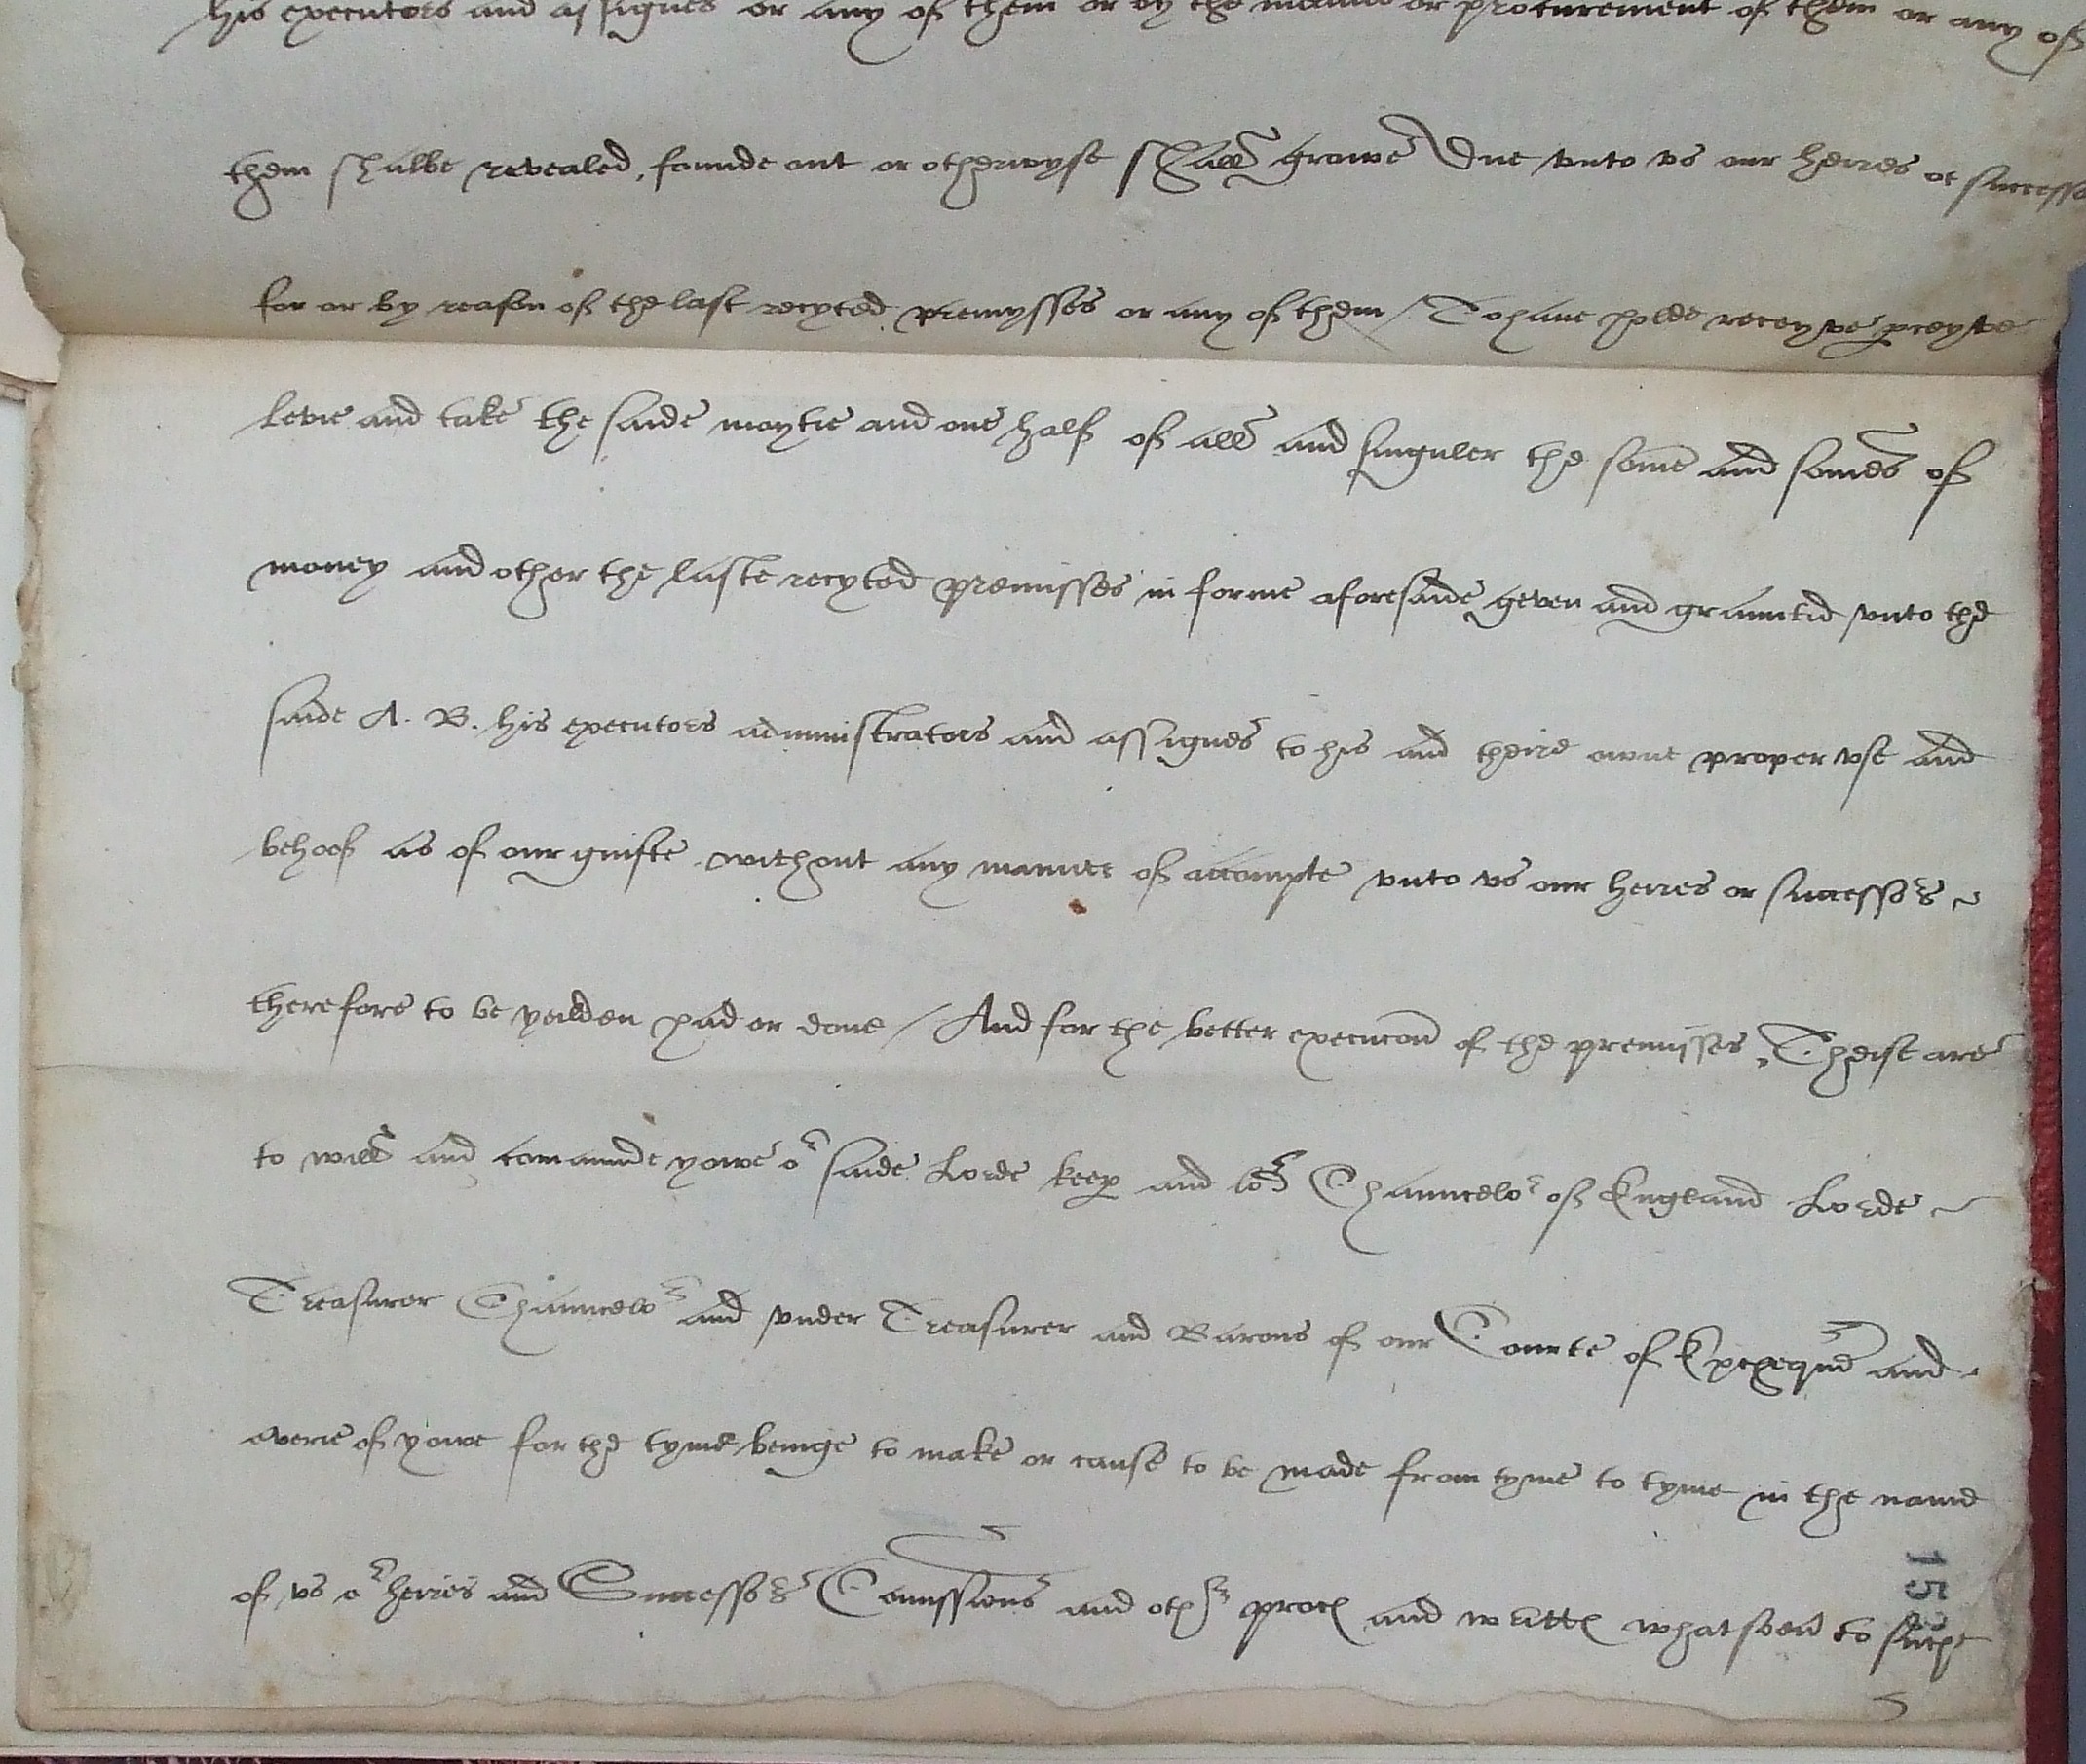 his executors and assignes or any of them or by the meanes or procurement of them or any of
them shalbe revealed, founde out or otherwyse shall growe due vnto vs our heires or successo
for or by reason of the last recyted premysses or any of them / To haue holde receyve perceyve
levie and take the saide moytie and one half of all and singuler the some and somes of
money and other the laste recyted premisses in forme aforesaide geven and grauntid vnto the
saide A. B. his executors administrators and assignes to his and theire owne proper vse and
behoof as of our guifte without any manner of accompte vnto vs our heires or successors
therefore to be yealden paid or done / And for the better execucon of the premisses, Theise are
to will and comaunde yowe or saide Lorde keep and lord Chauncelor of England Lorde
Treasurer Chauncelor and vnder Treasurer and Barons of our Courte of Exchequer and
everie of yowe for the tyme beinge to make or cause to be made from tyme to tyme in the name
of vs or heires and Successors Comissions and other proces and writtes whatsoeu to suche
153